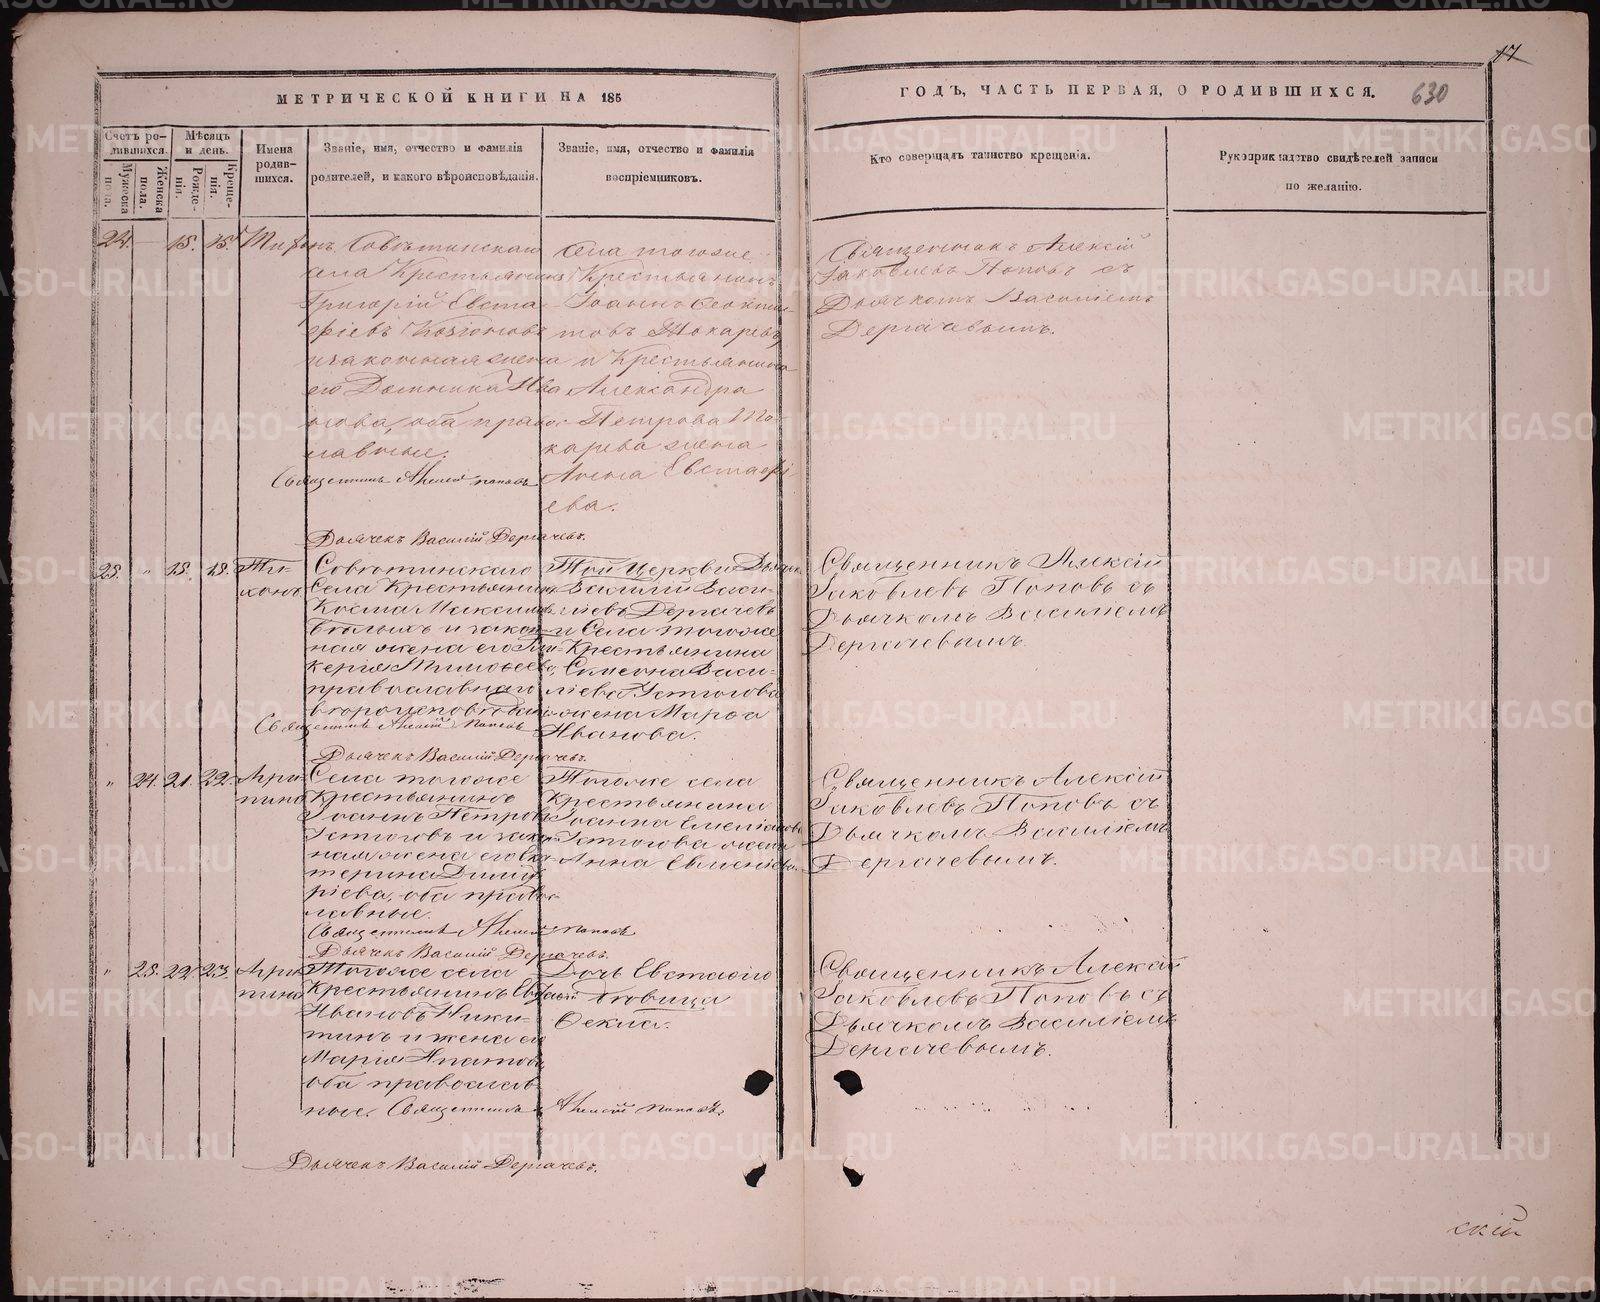 17
МЕТРИЧЕСКОЙ КНИГИ НА 185
ГОДЪ, ЧАСТЬ ПЕРВАЯ, О РОДИВШИХСЯ.
630
Счетъ ро-
дившихся.
Мужеска
пола.
Женска
пола.
Мѣсяцъ
и день.
Рожде-
нія.
Креще-
нія.
Имена
родив-
шихся.
Званіе, имя, отчество и фамилія
родителей, и какого вѣроисповѣданія.
Званіе, имя, отчество и фамилія
воспріемниковъ.
Кто совершалъ таинство крещенія.
Рукоприкладство свидѣтелей записи
по желанію.
24. — 15. 15.
села Крестьянинъ
Григорій Евста
фіевъ
и законная жена
его Домника Ива
нова, оба право
славные.
Священникъ Алексій Поповъ
Дьячекъ Василій Дергачевъ.
Села тогоже
Крестьянинъ
Іоаннъ Ѳеоктис
товъ Токаревъ
и Крестьянина
Александра
Петрова То-
карева жена
Анна Евстафі
ева.
Священникъ Алексій
Іаковлевъ Поповъ съ
Дьячкомъ Василіемъ
Дергачевымъ.
25. " 15. 18.
Ти-
хонъ
Совѣтинскаго
Села Крестьянинъ
Косма Максимовъ
и закон-
ная жена его Гли-
керія Тимоѳеева
православнаго
вѣроисповѣданія
Священникъ Алексій Поповъ
Дьячекъ Василій Дергачевъ.
Той Церкви Дьячекъ
Василій Васи-
ліевъ Дергачевъ
и Села тогоже
Крестьянина
Симеона Васи-
ліева Устюгова
жена Марѳа
Иванова.
Священникъ Алексій
Іаковлевъ Поповъ съ
Дьячкомъ Василіемъ
Дергачевымъ.
" 24. 21. 22.
Агри
пина
Села тогоже
Крестьянинъ
Іоаннъ Петровъ
Устюговъ и закон
ная жена его Ека
терина Димит
ріева, оба право
славные.
Священникъ Алексій Поповъ
Дьячекъ Василій Дергачевъ.
Тогоже села
Крестьянина
Іоанна Емеліанова
Устюгова жена
Анна Евменіева.
Священникъ Алексій
Іаковлевъ Поповъ съ
Дьячкомъ Василіемъ
Дергачевымъ.
" 25. 22. 23.
Агри
пина
Тогоже села
Крестьянинъ
Ивановъ Ники-
тинъ и жена его
Марія Ипатова
оба православ-
ные. Священникъ Алексій Поповъ.
Дьячекъ Василій Дергачевъ.
Дочь Евстафія
дѣвица
Ѳекла.
Священникъ Алексій
Іаковлевъ Поповъ съ
Дьячкомъ Василіемъ
Дергачевымъ.
скій
METRIKI.GASO-URAL.RU